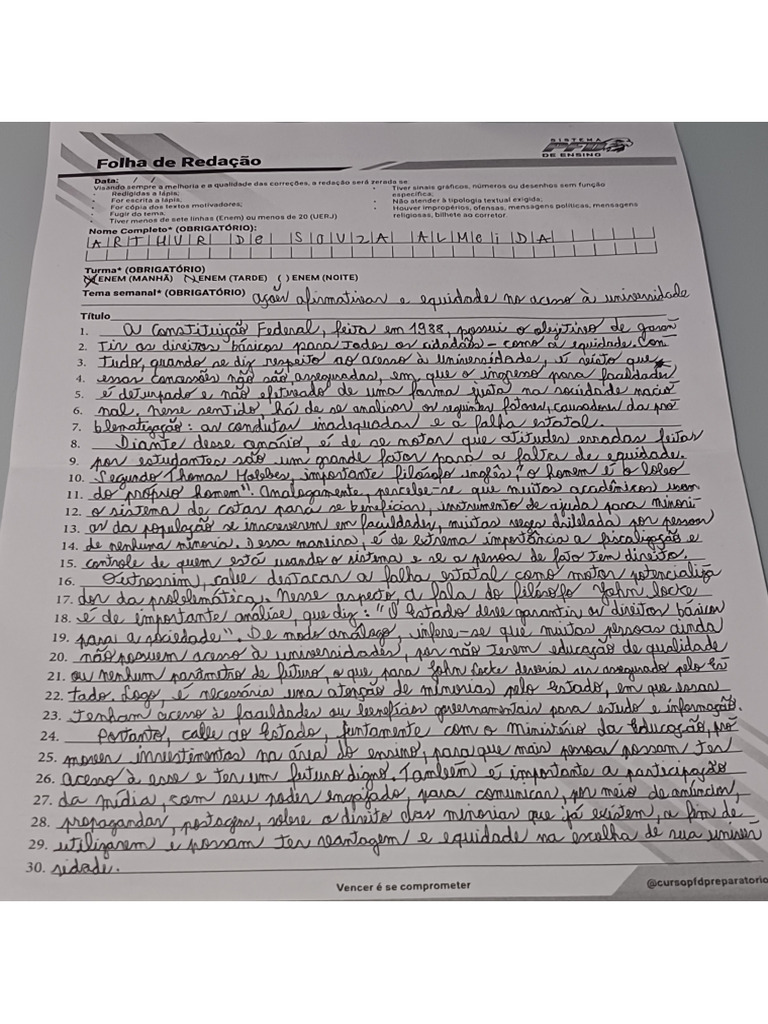 Folha de Redação
SISTEMA
PFD
DE ENSINO
Data: / /
Visando sempre a melhoria e a qualidade das correções, a redação será zerada se:
· Redigidas a lápis;
· For escrita a lápis,
· For cópia dos textos motivadores;
· Fugir do tema;
· Tiver menos de sete linhas (Enem) ou menos de 20 (UERJ)
· Tiver sinais gráficos, números ou desenhos sem função específica;
· Não atender à tipologia textual exigida;
· Houver impropérios, ofensas, mensagens políticas, mensagens religiosas, bilhete ao corretor.
Nome Completo* (OBRIGATÓRIO):
ARTHUR De SOUZA ALMeiDA
Turma* (OBRIGATÓRIO)
(X) ENEM (MANHÃ) ( ) ENEM (TARDE) ( ) ENEM (NOITE)
Tema semanal* (OBRIGATÓRIO) Ações afirmativas e equidade no acesso à universidade
Título
1. A Constituição Federal, feita em 1988, possui o objetivo de garan
2. tir os direitos básicos para todos os cidadãos - como a equidade. Con
3. tudo, quando se diz respeito ao acesso à universidade, é visto que
4. essas concessões não são asseguradas, em que o ingresso para faculdades
5. é deturpado e não efetivado de uma forma justa na sociedade nacio
6. nal. Nesse sentido, há de se analisar os seguintes fatores, causadores da pro
7. blematização: as condutas inadequadas e a falha estatal.
8. Diante desse cenário, é de se notar que atitudes erradas feitas
9. por estudantes são um grande fator para a falta de equidade.
10. Segundo Thomas Hobbes, importante filósofo inglês, "o homem é o lobo
11. do próprio homem". Analogamente, percebe-se que muitos acadêmicos usam
12. o sistema de cotas para se beneficiar, instrumento de ajuda para minori
13. as da população se inscreverem em faculdades, muitas vezes driblada por pessoas
14. de nenhuma minoria. Dessa maneira, é de extrema importância a fiscalização e
15. controle de quem está usando o sistema e se a pessoa de fato tem direito.
16. Outrossim, cabe destacar a falha estatal como motor potencializa
17. dor da problemática. Nesse aspecto, a fala do filósofo John Locke
18. é de importante análise, que diz: "O Estado deve garantir os direitos básicos
19. para a sociedade". De modo análogo, infere-se que muitas pessoas ainda
20. não possuem acesso à universidades, por não terem educação de qualidade
21. ou nenhum parâmetro de futuro, o que para John Locke deveria ser assegurado pelo Es
22. tado. Logo, é necessária uma atenção de minorias pelo Estado, em que essas
23. tenham acesso à faculdades ou benefícios governamentais para estudo e informação.
24. Portanto, cabe ao Estado, juntamente com o Ministério da Educação, pro
25. mover investimentos na área do ensino, para que mais pessoas possam ter
26. acesso à esse e ter um futuro digno. Também é importante a participação
27. da mídia, com seu poder engajado, para comunicar, por meio de anúncios,
28. propagandas, postagens, sobre o direito das minorias que já existem, a fim de
29. utilizarem e possam ter vantagem e equidade na escolha de sua univer
30. sidade.
Vencer é se comprometer
@cursopfdpreparatorio